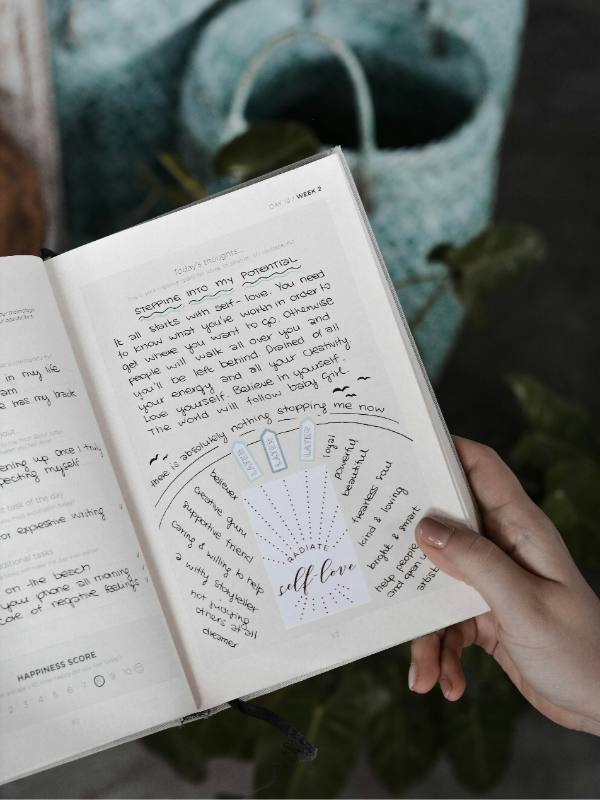 in my life
am
e has my back
ening up once I truly
pecting myself
t task of the day
or expressive writing
ditional tasks
on the beach
your phone all morning
care of negative feelings
HAPPINESS SCORE
2 3 4 5 6 7 8 9 10
DAY 12 / WEEK 2
Today's thoughts...
STEPPING INTO MY POTENTIAL
It all starts with self-love. You need
to know what you're worth in order to
get where you want to go. Otherwise
people will walk all over you and
you'll be left behind drained of all
your energy and all your creativity.
Love yourself. Believe in yourself.
The world will follow baby girl.
there is absolutely nothing stopping me now
LATER
LATER
LATER
believer
creative guru
supportive friend
caring & willing to help
a witty storyteller
not judging
others at all
dreamer
RADIATE
self-love
loyal
powerful
beautiful
fearless soul
kind & loving
bright & smart
help people
and open
artist